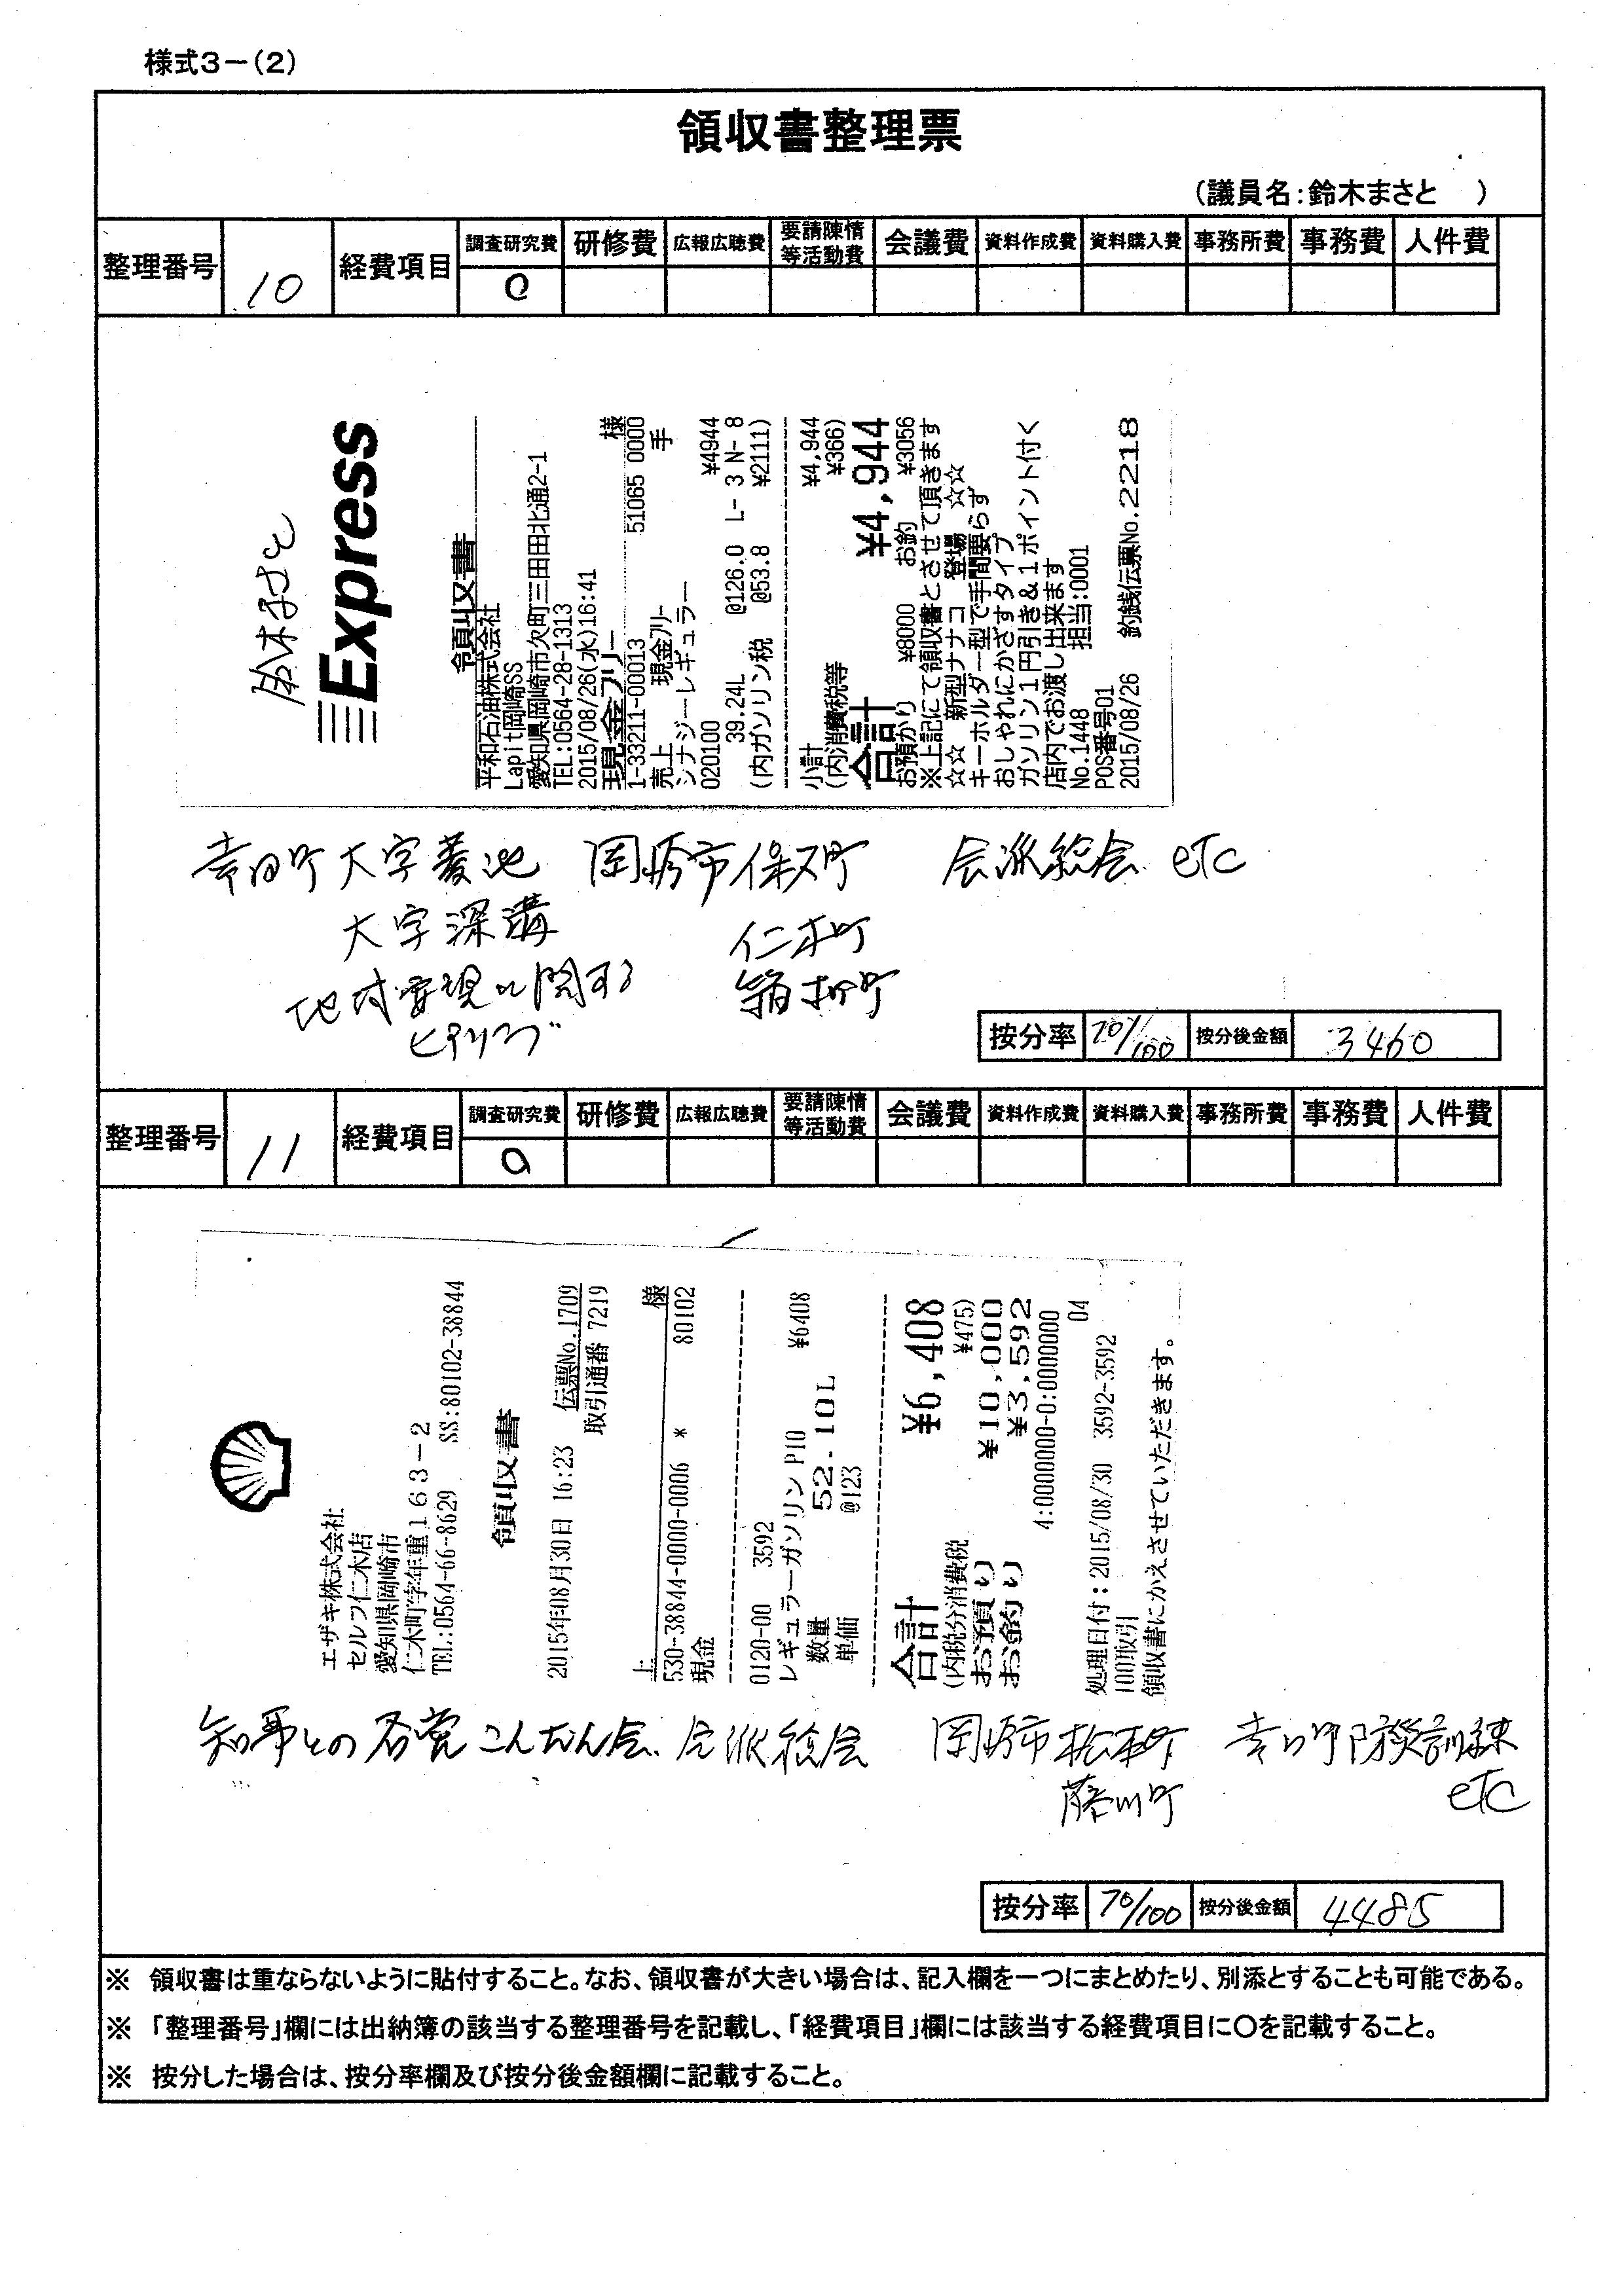 様式3-(2)
領収書整理票
(議員名:鈴木まさと　)
整理番号 10 経費項目 調査研究費 研修費 広報広聴費 要請陳情等活動費 会議費 資料作成費 資料購入費 事務所費 事務費 人件費
○
鈴木まさと
Express
領収書
平和石油株式会社
Lapit岡崎SS
愛知県岡崎市欠町三田田北通2-1
TEL:0564-28-1313
2015/08/26(水)16:41
現金フリー 様
1-33211-00013 51065 0000
売上 現金フリー 手
シナジーレギュラー
020100 ¥4944
39.24L @126.0 L- 3 N- 8
(内ガソリン税 @53.8 ¥2111)
小計 ¥4,944
(内消費税等 ¥366)
合計 ¥4,944
お預かり ¥8000 お釣 ¥3056
※上記にて領収書とさせて頂きます
☆☆ 新型ナナコ 登場 ☆☆
キーホルダー型で手間要らず
おしゃれにかざすタイプ
ガソリン1円引き&1ポイント付く
店内でお渡し出来ます
No.1448 担当:0001
POS番号01
2015/08/26 釣銭伝票No.2218
幸田町大字菱池 岡崎市保久町 会派総会 etc
大字深溝 仁木町
地域要望に関する 箱柳町
ヒアリング
按分率 70/100 按分後金額 3460
整理番号 11 経費項目 調査研究費 研修費 広報広聴費 要請陳情等活動費 会議費 資料作成費 資料購入費 事務所費 事務費 人件費
○
エザキ株式会社
セルフ仁木店
愛知県岡崎市
仁木町字年重163-2
TEL:0564-66-8629 SS:80102-38844
領収書
2015年08月30日 16:23 伝票No.1709
取引通番 7219
上 様
530-38844-0000-0006 * 80102
現金
0120-00 3592
レギュラーガソリン P10 ¥6408
数量 52.10L
単価 @123
合計 ¥6,408
(内税分消費税 ¥475)
お預り ¥10,000
お釣り ¥3,592
4:0000000-0:0000000
04
処理日付:2015/08/30 3592-3592
100取引
領収書にかえさせていただきます。
知事との各党こんだん会、会派総会 岡崎市松本町 幸田町防災訓練
藤川町 etc
按分率 70/100 按分後金額 4485
※ 領収書は重ならないように貼付すること。なお、領収書が大きい場合は、記入欄を一つにまとめたり、別添とすることも可能である。
※ 「整理番号」欄には出納簿の該当する整理番号を記載し、「経費項目」欄には該当する経費項目に○を記載すること。
※ 按分した場合は、按分率欄及び按分後金額欄に記載すること。